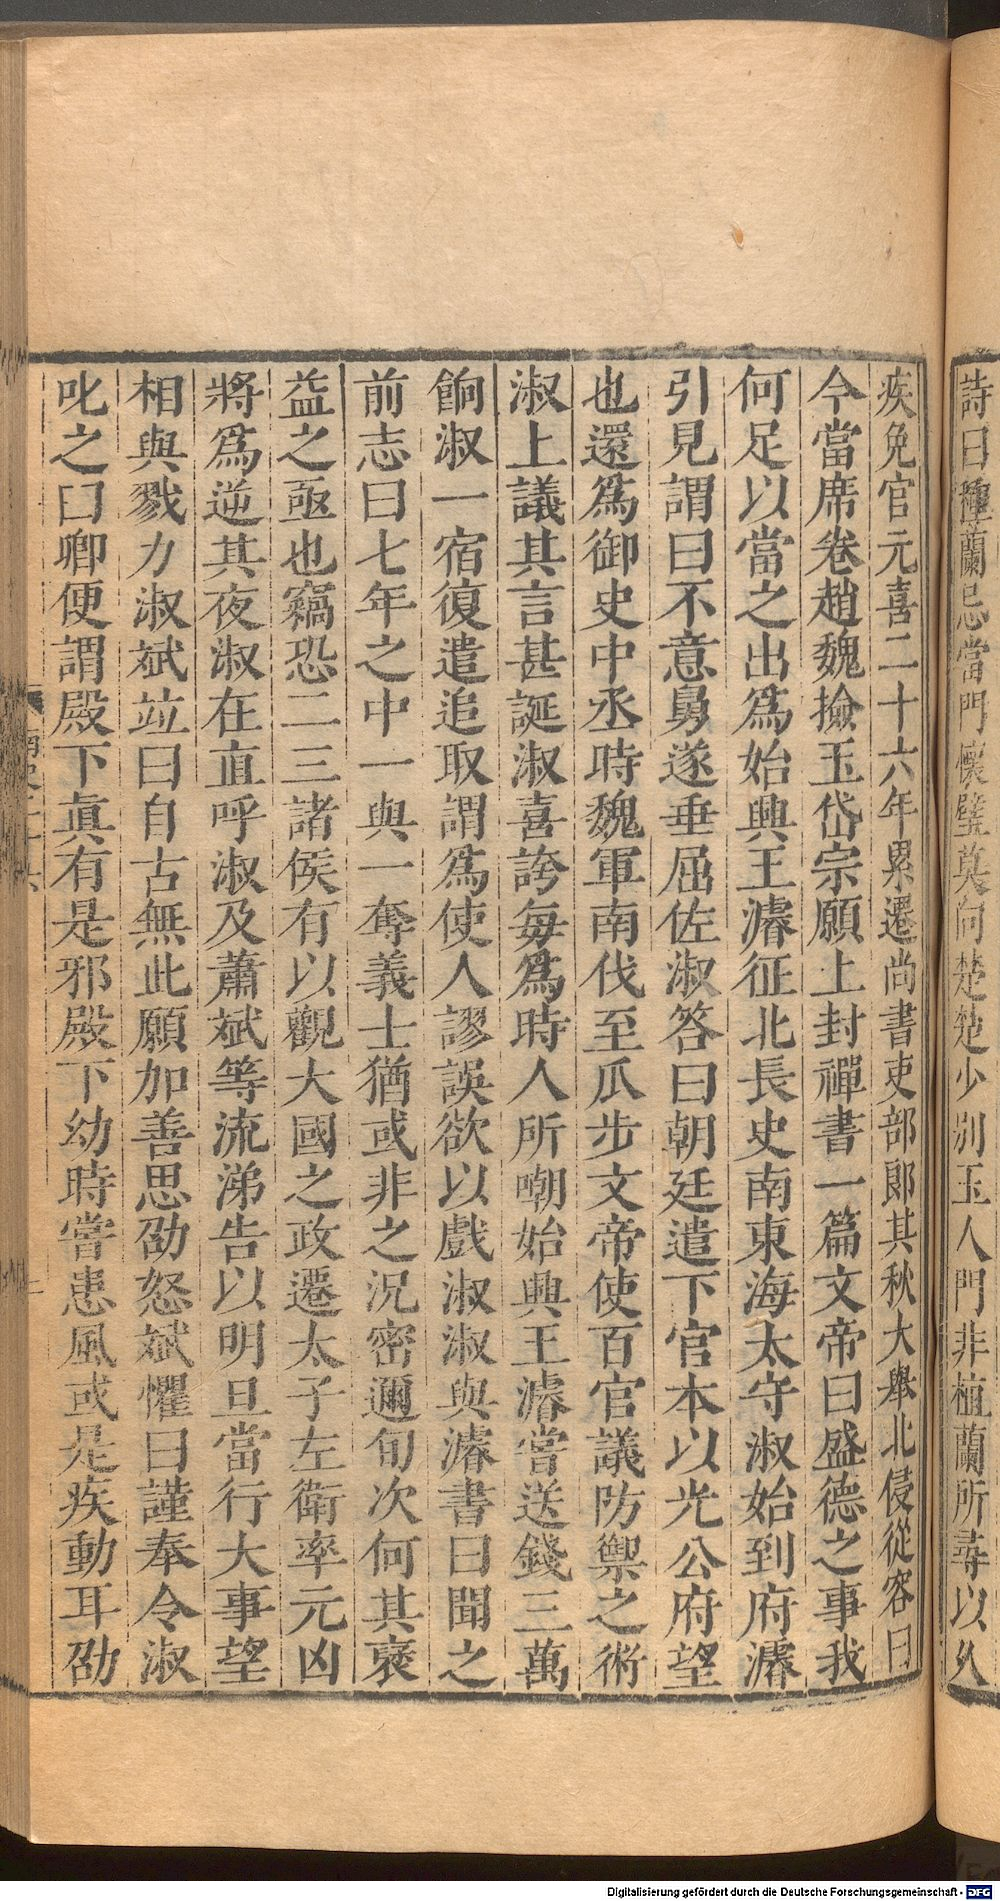 詩曰種蘭忌當門懷璧莫向楚楚少別玉人門非植蘭所尋以久
疾免官元喜二十六年累遷尚書吏部郎其秋大舉北侵從容曰
今當席卷趙魏撿玉岱宗願上封禪書一篇文帝曰盛德之事我
何足以當之出爲始興王濬征北長史南東海太守淑始到府濬
引見謂曰不意舅遂垂屈佐淑答曰朝廷遣下官本以光公府望
也還爲御史中丞時魏軍南伐至瓜步文帝使百官議防禦之術
淑上議其言甚誕淑喜誇每爲時人所嘲始興王濬嘗送錢三萬
餉淑一宿復遣追取謂爲使人謬誤欲以戲淑淑與濬書曰聞之
前志曰七年之中一與一奪義士猶或非之況密邇旬次何其裒
益之亟也竊恐二三諸侯有以觀大國之政遷太子左衛率元凶
將爲逆其夜淑在直呼淑及蕭斌等流涕告以明旦當行大事望
相與戮力淑斌竝曰自古無此願加善思劭怒斌懼曰謹奉令淑
叱之曰卿便謂殿下眞有是邪殿下幼時嘗患風或是疾動耳劭
Digitalisierung gefördert durch die Deutsche Forschungsgemeinschaft - DFG